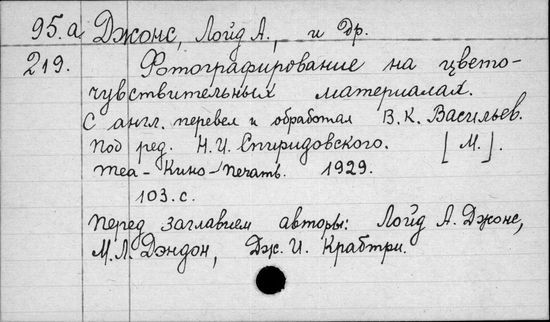 95.а Джонс, Лойд А., и др.
219. Фотографирование на цвето-
чувствительных материалах.
С англ. перевел и обработал В. К. Васильев.
Под ред. Н. И. Спиридовского. [М.].
Теа-Кино-Печать. 1929.
103. с.
Перед заглавием авторы: Лойд А. Джонс,
М. Л. Дэндон, Дж. И. Крабтри.